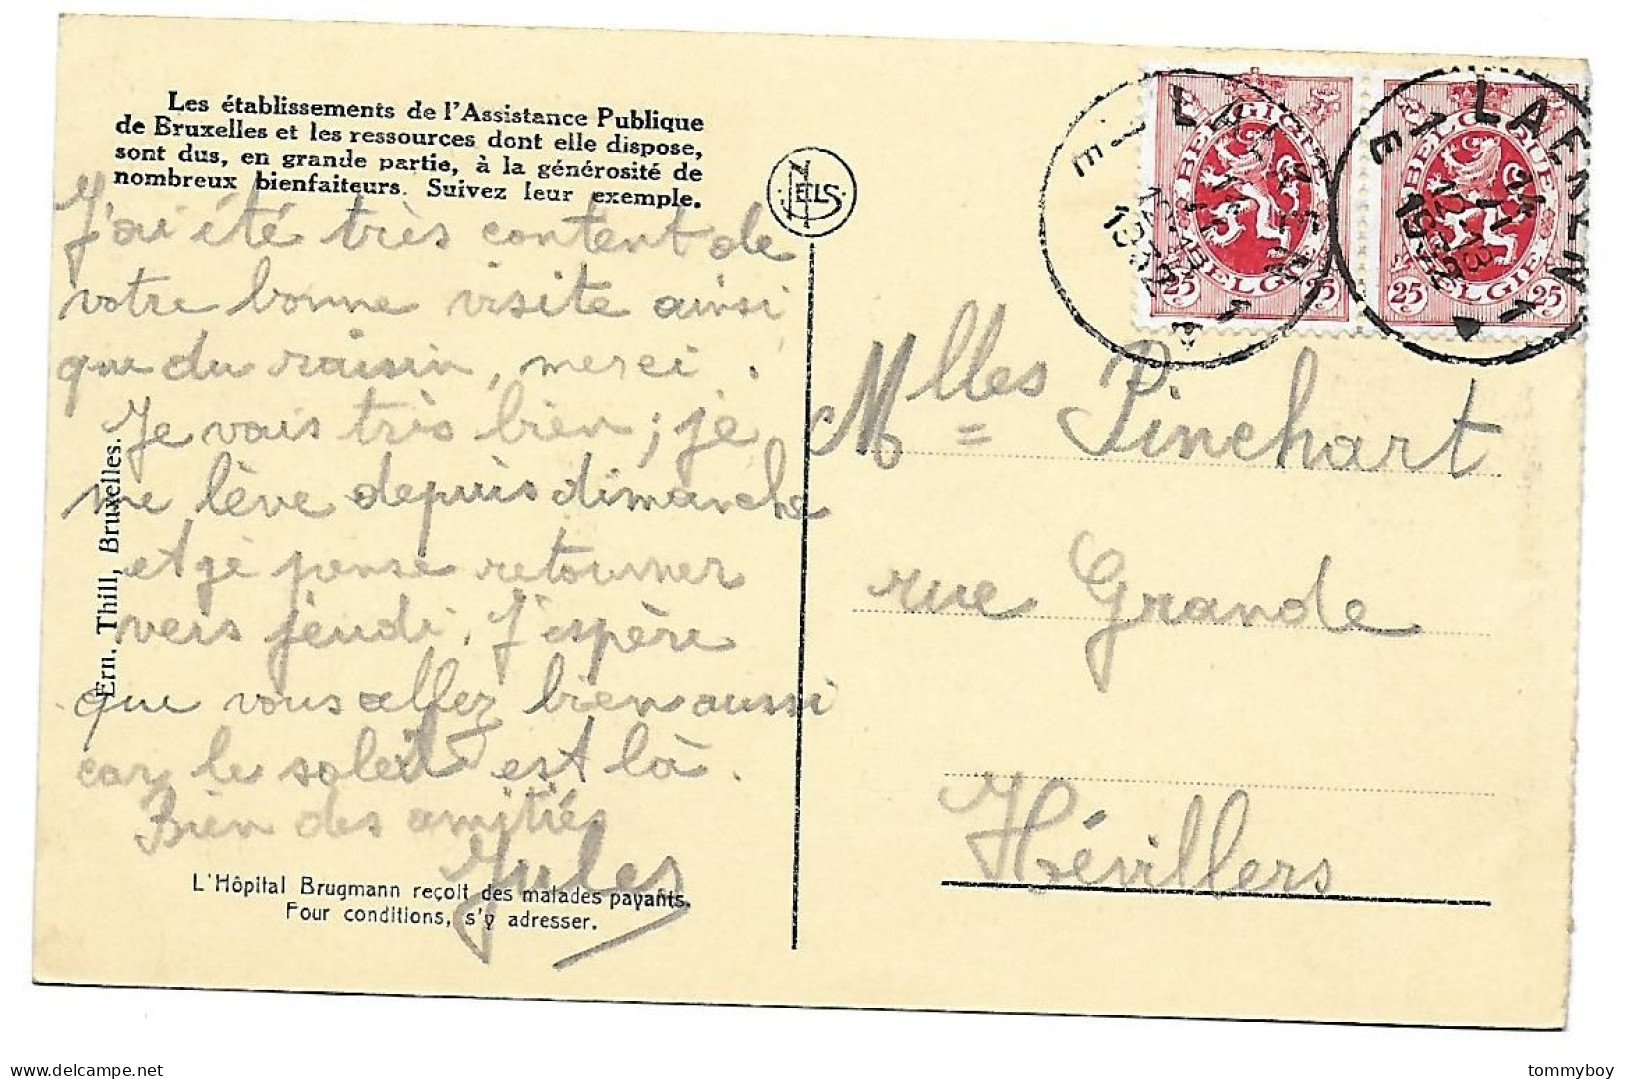 Les établissements de l'Assistance Publique
de Bruxelles et les ressources dont elle dispose,
sont dus, en grande partie, à la générosité de
nombreux bienfaiteurs. Suivez leur exemple.
J'ai été très content de
votre bonne visite ainsi
que du raisin, merci.
Je vais très bien; je
me lève depuis dimanche
et je pense retourner
vers jeudi. J'espère
que vous allez bien aussi
car le soleil est là.
Bien des amitiés
Jules
L'Hôpital Brugmann reçoit des malades payants.
Pour conditions, s'y adresser.
Ern. Thill, Bruxelles.
NELS
BELGIQUE
25 BELGIE 25
BELGIQUE
25 BELGIE 25
LAEKEN 1
1932
LAEKEN 1
1932
Mlles Pinchart
rue Grande
Hévillers
tommyboy